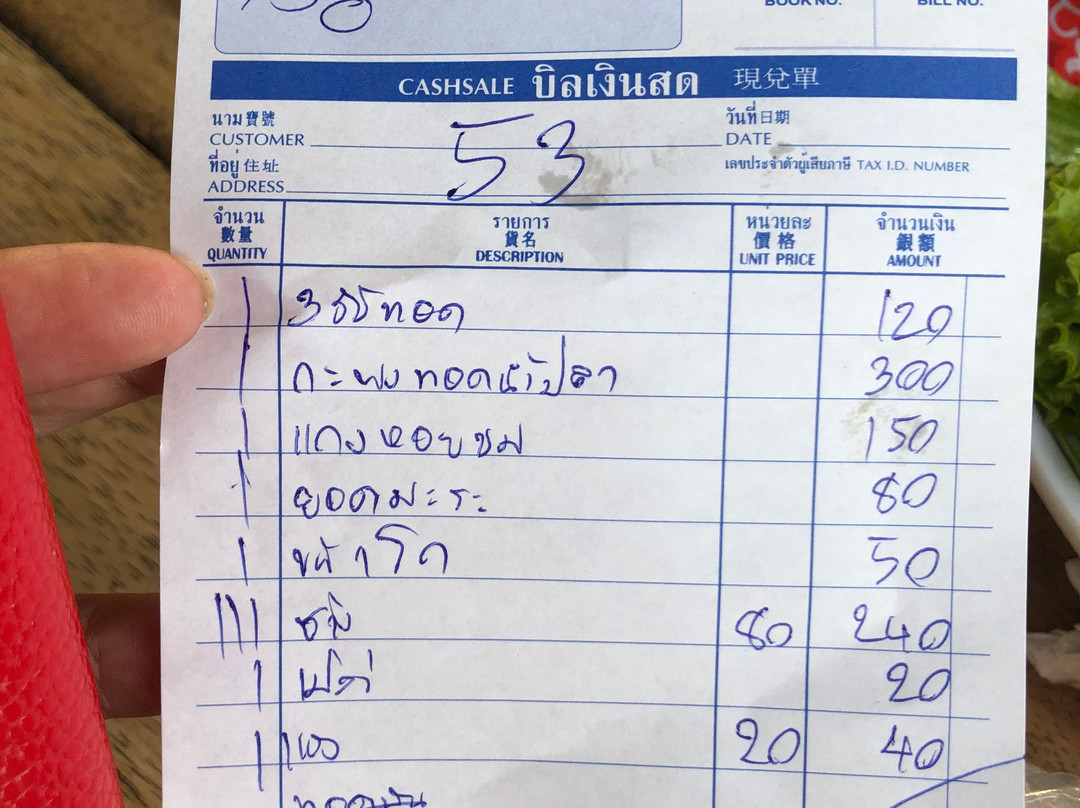 BOOK NO. BILL NO.
CASHSALE บิลเงินสด 現兌單
นาม寶號 วันที่日期
CUSTOMER 53 DATE
ที่อยู่住址 เลขประจำตัวผู้เสียภาษี TAX I.D. NUMBER
ADDRESS
จำนวน รายการ หน่วยละ จำนวนเงิน
數量 貨名 價格 銀額
QUANTITY DESCRIPTION UNIT PRICE AMOUNT
1 ทอด 120
1 กะพงทอดน้ำปลา 300
1 แกงหอยขม 150
1 ยอดมะระ 80
1 50
111 80 240
1 เป๊ปซี่ 20
1 20 40